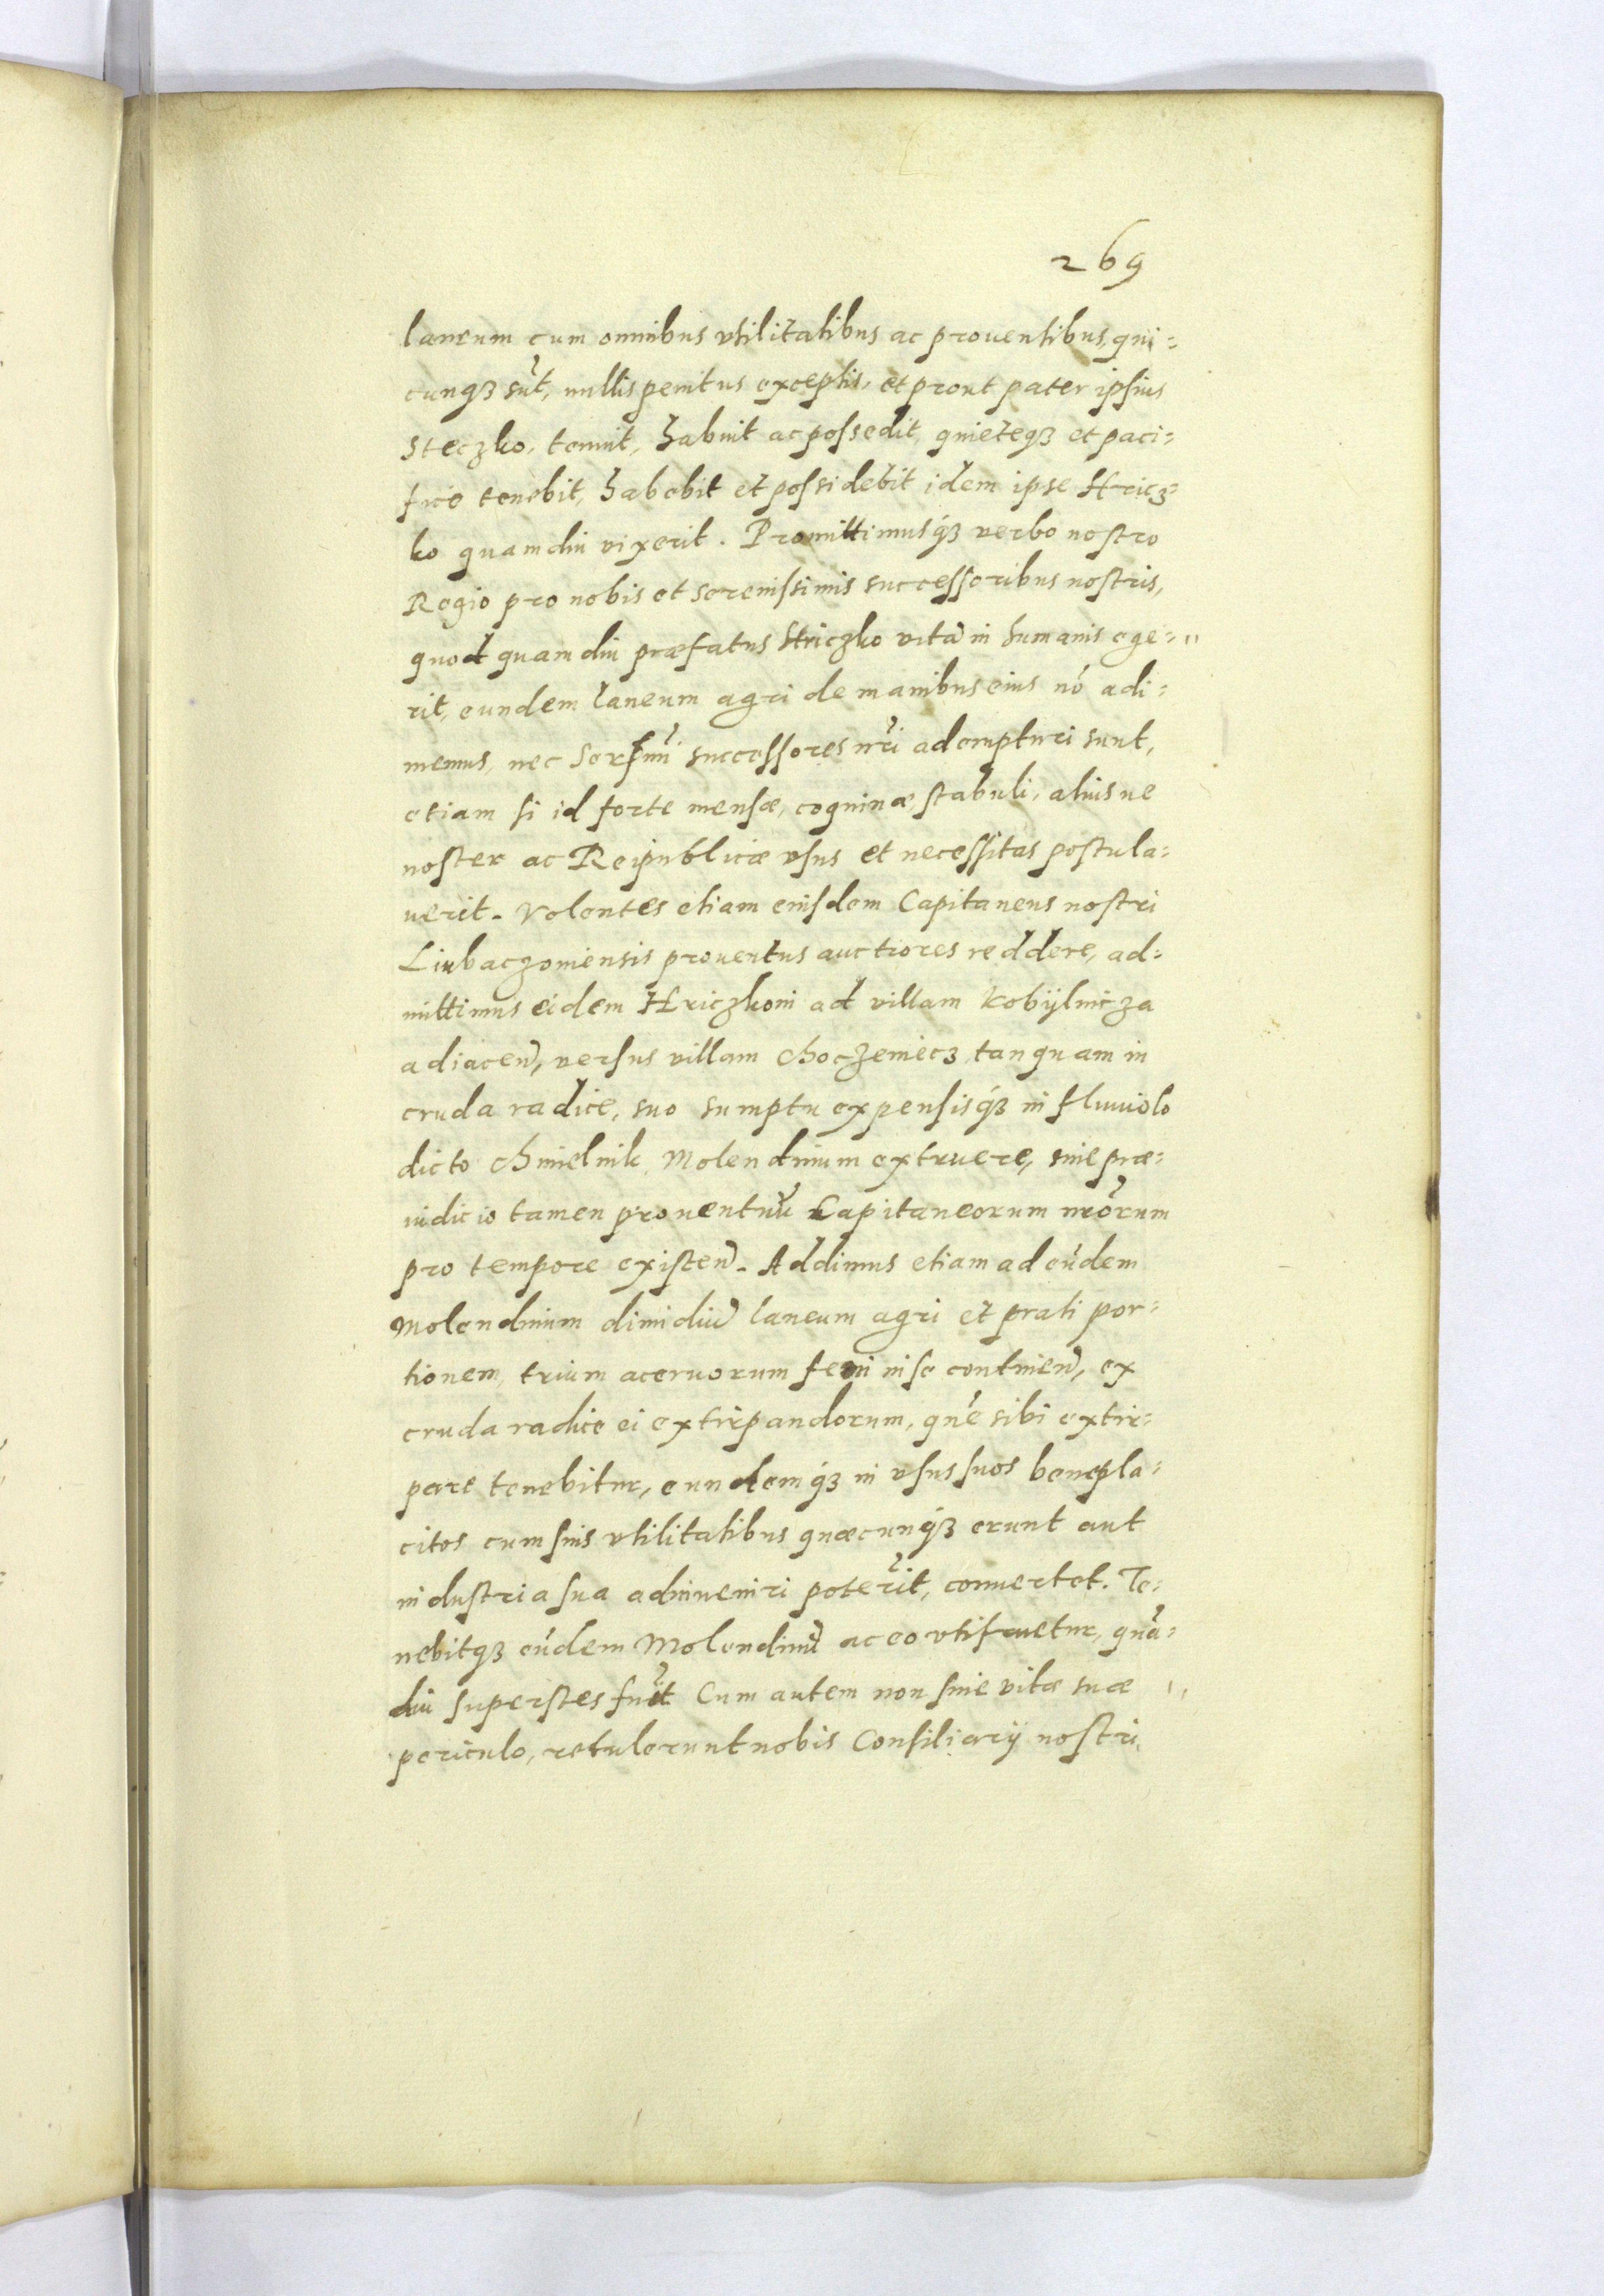 269
laneum cum omnibus vtilitatibus ac prouentibus, qui=
cunqꝫ sũt, nullis penitus exceptis, et prout pater ipsius
Steczko, tenuit, habuit ac possedit, quieteqꝫ et paci=
fice tenebit, habebit et possidebit idem ipse Hricz=
ko quamdiu vixerit. Promittimusqꝫ verbo nostro
Regio pro nobis et serenissimis successoribus nostris,
quod quamdiu præfatus Striczko vitã in humanis ege=
rit, eundem laneum agri de manibus eius nõ adi=
memus, nec Sersmi successores nri adempturi sunt,
etiam si id forte mensæ, coquinæ, stabuli, aliusue
noster ac Reipublicæ vsus et necessitas postula=
uerit. Volentes etiam eiusdem Capitaneus nostri
Liubaczouiensis prouentus auctiores reddere, ad=
mittimus eidem Hriczkoni ad villam Kobijlnicza
adiaceñ, versus villam Choczeniecz, tanquam in
cruda radice, suo sumptu expensisqꝫ in fluuiolo
dicto Chmielnik Molendinum extruere, sine præ=
iudicio tamen prouentuũ Capitaneorum nrorum
pro tempore existeñ. Addimus etiam ad eũdem
Molendinum dimidiũ laneum agri et prati por=
tionem, trium aceruorum feni in se contineñ, ex
cruda radice ei extirpandorum, quẽ sibi extir=
pare tenebitur, eundemqꝫ in vsus suos benepla=
citos cum suis vtilitatibus quæcunqꝫ erunt aut
industria sua adinueniri poterit, conuertet. Te=
nebitqꝫ eũdem Molendinũ ac eo vtifruetur, quã=
diu superstes fuĩt Cum autem non sine vitæ suæ
periculo, retulerunt nobis Consiliarij nostri